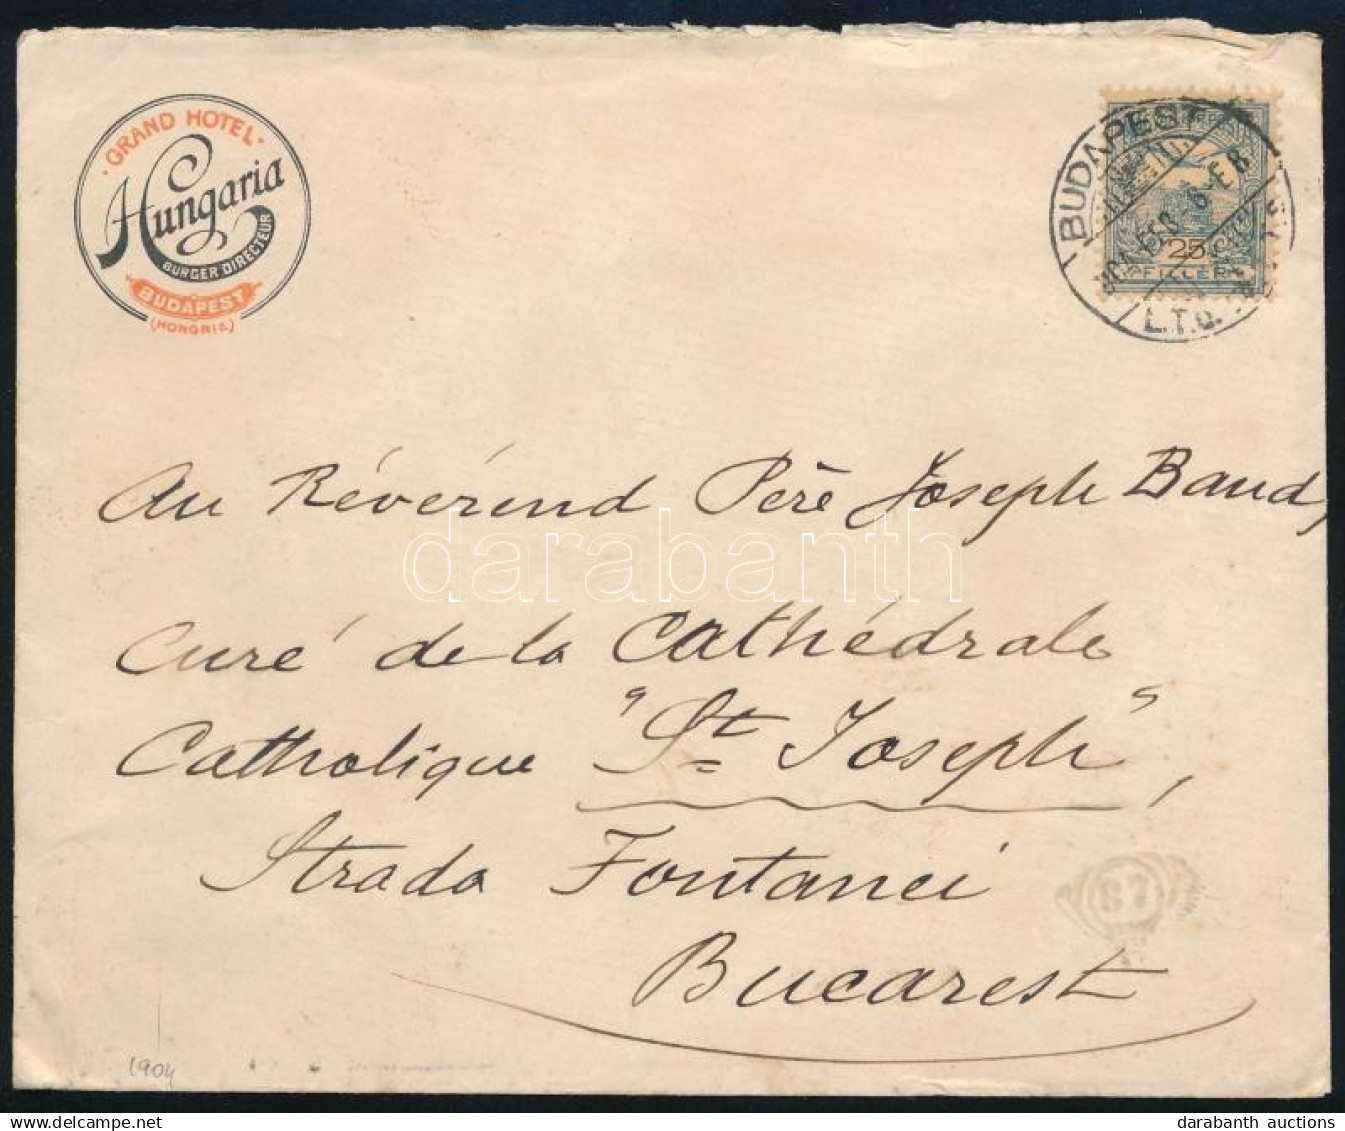 GRAND HOTEL
Hungaria
BURGER DIRECTEUR
BUDAPEST
(HONGRIE)
BUDAPEST
904 FEB. 6 E 8
25
FILLÉR
L.T.G.
Au Révérend Père Joseph Baud,
darabanth
Curé de la Cathédrale
Catholique "St Joseph",
Strada Fontanei
87
Bucarest
1904
darabanth auctions